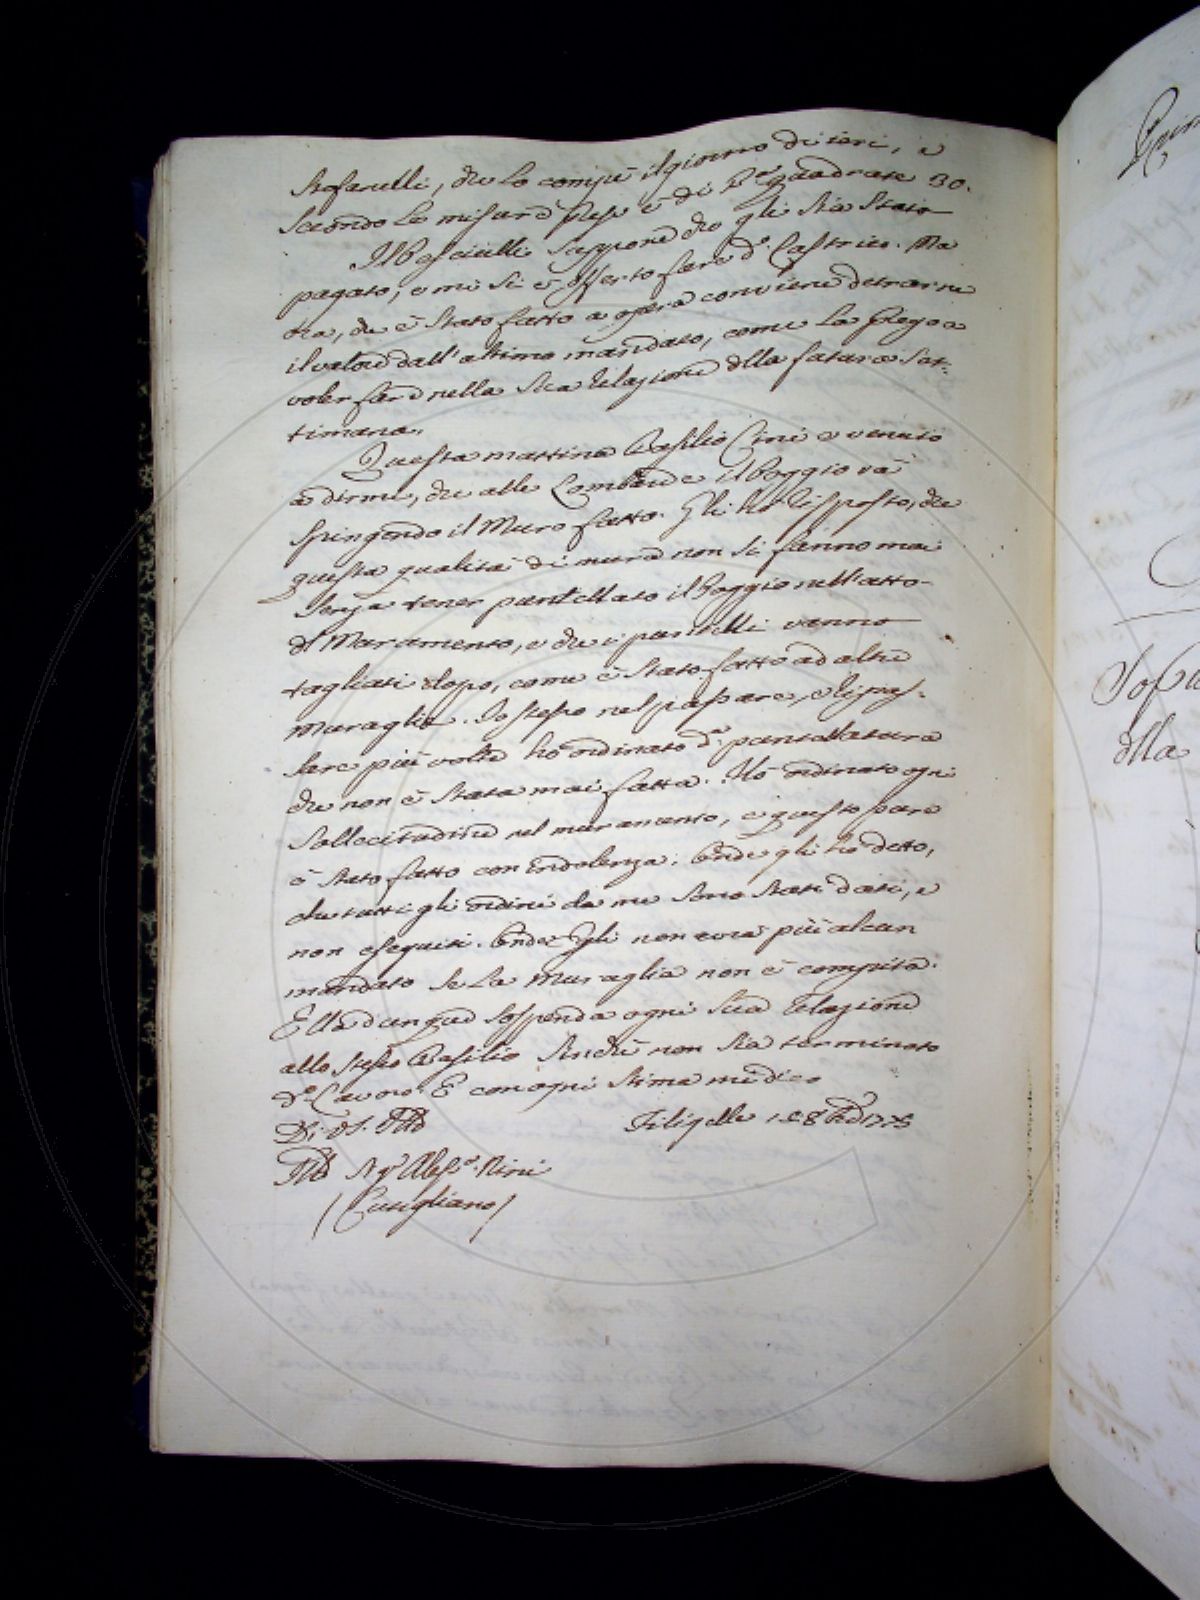 Stefanelli, che lo compiè il giorno di ieri, e
secondo le misure prese è di B.ª quadrate 30.
Il Pesciulli suppone che gli sia stato
pagato, e mi si è offerto fare d.º lastrico. Ma
ora, che è stato fatto a opera conviene detrarne
il valore dall'ultimo mandato, come la prego a
voler fare nella sua relazione della futura set-
timana.
Questa mattina Basilio Cini è venuto
a dirmi, che alle Lombarde il Poggio và
spingendo il Muro fatto. Gli ho risposto, che
questa qualità di mura non si fanno mai
senza tener puntellato il Poggio nell'atto
del Muramento, e che i puntelli vanno
tagliati dopo, come è stato fatto ad altre
muraglie. Io stesso nel passare, e ripas-
sare più volte ho ordinato d.ª puntellatura
che non è stata mai fatta. Hò ordinato ogni
sollecitudine nel muramento, e questo pure
è stato fatto con indolenza. Onde gli ho detto,
che tutti gli ordini da me sono stati dati, e
non eseguiti. Onde Egli non avrà più alcun
mandato se la muraglia non è compita.
Ella dunque sospenda ogni sua relazione
allo stesso Basilio finchè non sia terminato
d.º Lavoro. E con ogni stima mi dico
Di VS. Ill.ª
Filigelle 1775
Ill.º Sig.r Aless.º Nini
(Cutigliano)
della